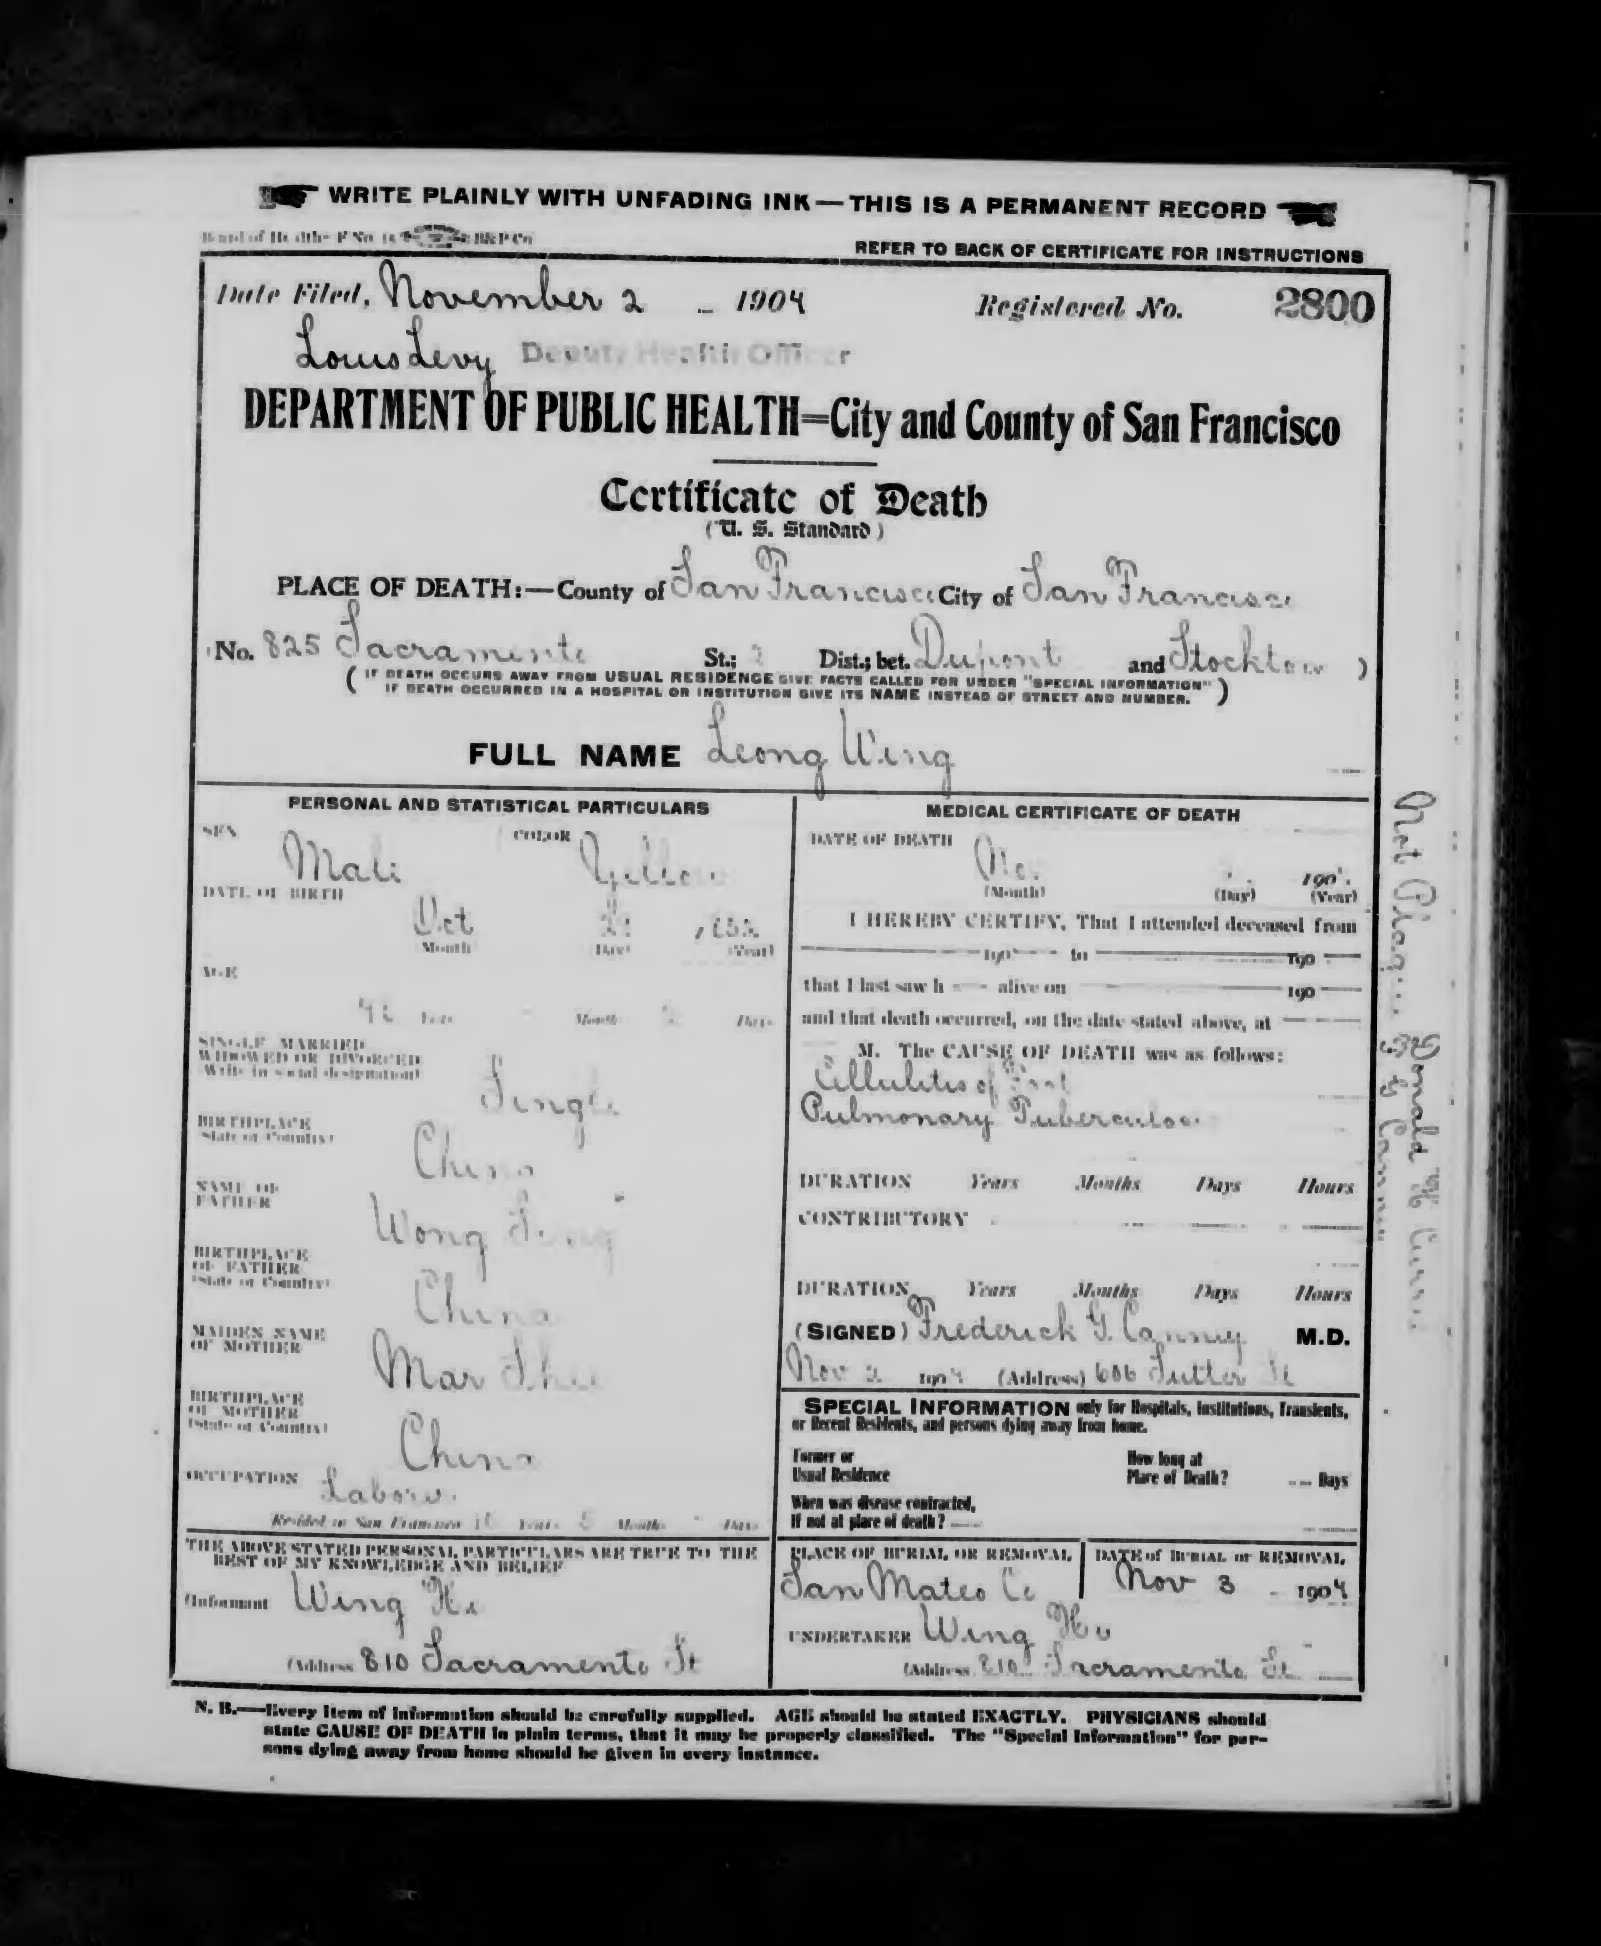 WRITE PLAINLY WITH UNFADING INK — THIS IS A PERMANENT RECORD
Board of Health F No. B&P Co
REFER TO BACK OF CERTIFICATE FOR INSTRUCTIONS
Date Filed, November 2 1904 Registered No. 2800
Louis Levy Deputy Health Officer
DEPARTMENT OF PUBLIC HEALTH=City and County of San Francisco
Certificate of Death
(U. S. Standard)
PLACE OF DEATH:—County of San Francisco City of San Francisco
No. 825 Sacramento St.; Dist.; bet. Dupont and Stockton )
( IF DEATH OCCURS AWAY FROM USUAL RESIDENCE GIVE FACTS CALLED FOR UNDER "SPECIAL INFORMATION"
IF DEATH OCCURRED IN A HOSPITAL OR INSTITUTION GIVE ITS NAME INSTEAD OF STREET AND NUMBER. )
FULL NAME Leong Wing
PERSONAL AND STATISTICAL PARTICULARS
SEX Male COLOR Yellow
DATE OF BIRTH
Oct
(Month) (Day) (Year)
AGE
Years Months Days
SINGLE MARRIED
WIDOWED OR DIVORCED
(Write in social designation)
Single
BIRTHPLACE
(State or Country)
China
NAME OF
FATHER
Wong
BIRTHPLACE
OF FATHER
(State or Country)
China
MAIDEN NAME
OF MOTHER
Mar Shee
BIRTHPLACE
OF MOTHER
(State or Country)
China
OCCUPATION Labor
Resided in San Francisco Years Months Days
THE ABOVE STATED PERSONAL PARTICULARS ARE TRUE TO THE
BEST OF MY KNOWLEDGE AND BELIEF
(Informant Wing
(Address 810 Sacramento St
MEDICAL CERTIFICATE OF DEATH
DATE OF DEATH
190
(Month) (Day) (Year)
I HEREBY CERTIFY, That I attended deceased from
190 to 190
that I last saw h alive on 190
and that death occurred, on the date stated above, at
M. The CAUSE OF DEATH was as follows:
Cellulitis of
Pulmonary Tuberculosis
DURATION Years Months Days Hours
CONTRIBUTORY
DURATION Years Months Days Hours
(SIGNED) Frederick G. Canney M.D.
Nov 2 1904 (Address) 606 Sutter St
SPECIAL INFORMATION only for Hospitals, Institutions, Transients,
or Recent Residents, and persons dying away from home.
Former or
Usual Residence
How long at
Place of Death? Days
When was disease contracted,
If not at place of death?
PLACE OF BURIAL OR REMOVAL
San Mateo Co
DATE of BURIAL or REMOVAL
Nov 3 1904
UNDERTAKER Wing
(Address 810 Sacramento St
N. B.—Every item of information should be carefully supplied. AGE should be stated EXACTLY. PHYSICIANS should
state CAUSE OF DEATH in plain terms, that it may be properly classified. The "Special Information" for per-
sons dying away from home should be given in every instance.
Not
Donald H Currie